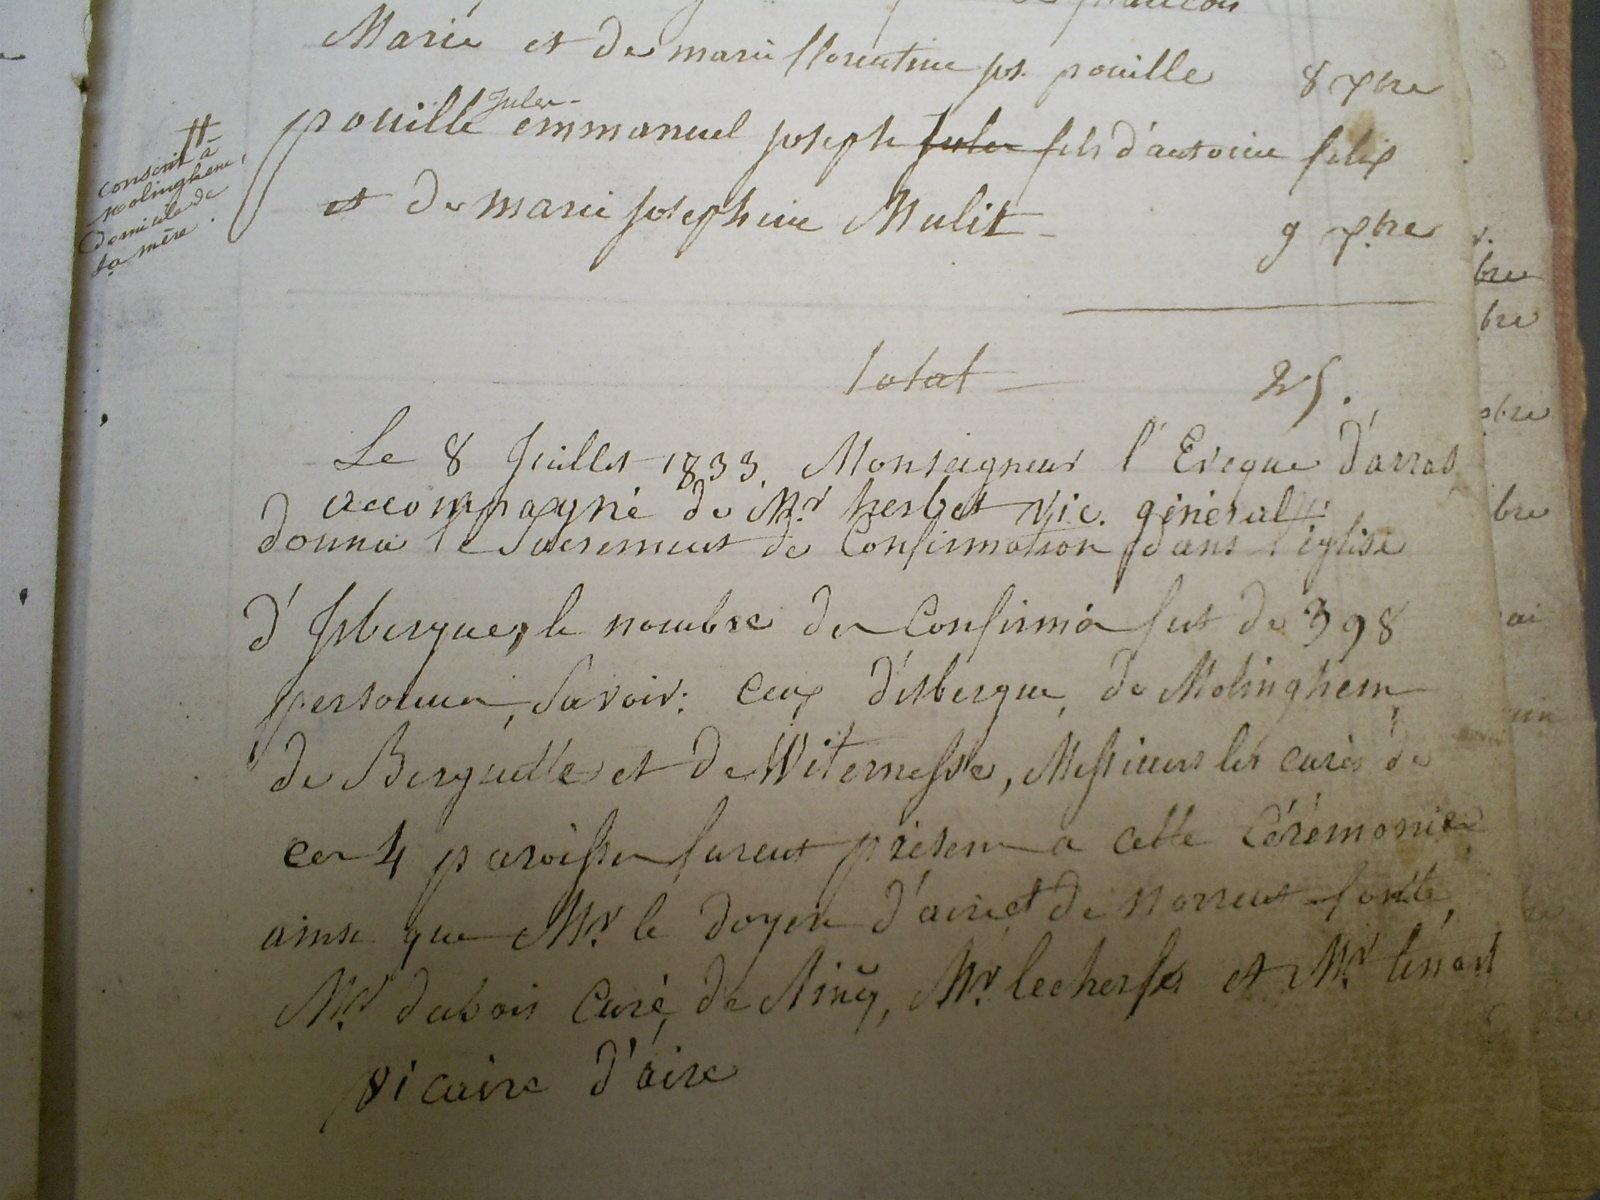 Marie et de marie florentine jos. pouille 8 7bre
pouille Jules emmanuel joseph Jules fils d'antoine felix
et de marie josephine Mulit 9 7.bre
#
conscrit à
molinghem,
domicile de
sa mère.
total 25.
Le 8 Juillet 1833. Monseigneur l'Eveque d'arras
accompagné de Mr. herbet Vic. général
donna le Sacrement de Confirmation dans l'église
d'Isbergues, le nombre des Confirmés fut de 398
personnes, Savoir: Ceux d'isbergue, de Molinghem
de Berguette et de Witernesse, Messieurs les curés de
ces 4 paroisses furent présens a cette Cérémonie
ainsi que Mr. le Doyen d'aire et de norrent fonte,
Mr. dubois Curé de, Mr. et Mr. lénart
vicaire d'aire